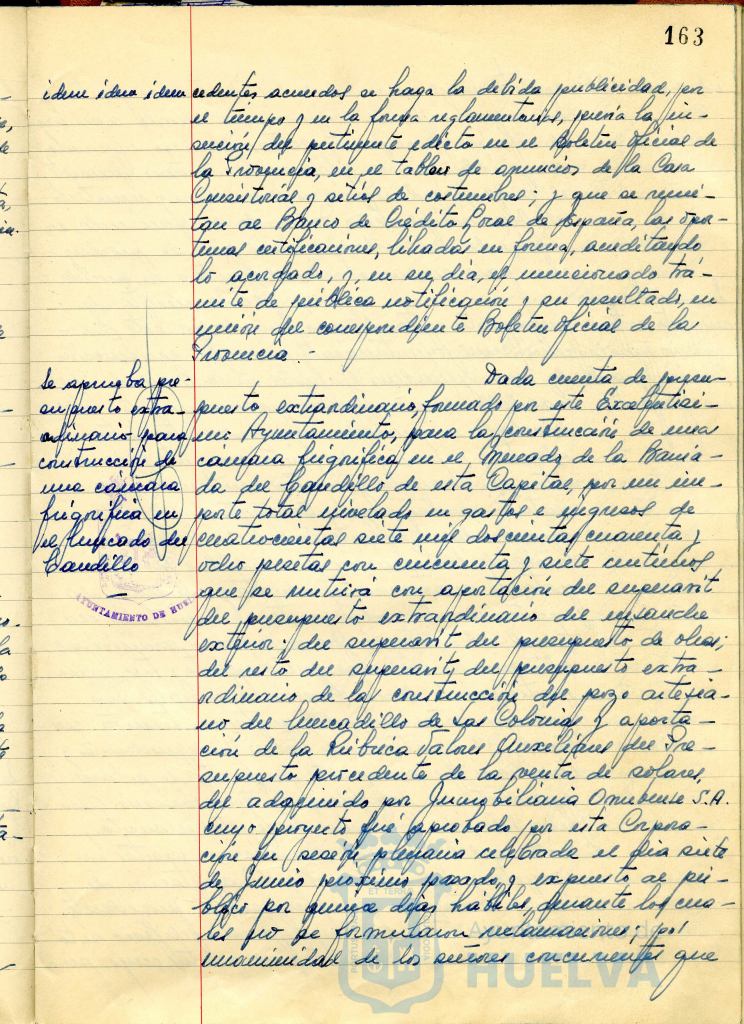 163
idem idem idem
cedentes acuerdos se haga la debida publicidad, por
el tiempo y en la forma reglamentarios, previa la in-
serción del pertinente edicto en el Boletín Oficial de
la Provincia, en el tablón de anuncios de la Casa
Consistorial y sitios de costumbres; y que se remi-
tan al Banco de Crédito Local de España, las opor-
tunas certificaciones, libradas en forma, acreditando
lo acordado, y, en su día, el mencionado trá-
mite de pública notificación y su resultado, en
unión del correspondiente Boletín Oficial de la
Provincia.-
Se aprueba pre-
supuesto extra-
ordinario para
construcción de
una cámara
frigorífica en
el Mercado del
Caudillo
AYUNTAMIENTO DE HUEL
Dada cuenta de presu-
puesto, extraordinario, formado por este Excelentísi-
mo Ayuntamiento, para la construcción de una
cámara frigorífica en el Mercado de la Barria-
da del Caudillo de esta Capital, por un im-
porte total nivelado en gastos e ingresos de
cuatrocientas siete mil doscientas cuarenta y
ocho pesetas con cincuenta y siete céntimos
que se nutrirá con aportación del superavit
del presupuesto extraordinario del ensanche
exterior; del superavit del presupuesto de obras;
del resto del superavit del presupuesto extra-
ordinario de la construcción del pozo artesia-
no del Mercadillo de Las Colonias y aporta-
ción de la Rúbrica Valores Auxiliares del Pre-
supuesto procedente de la venta de solares,
del adquirido por Inmobiliaria Onubense S.A.
cuyo proyecto fué aprobado por esta Corpora-
ción en sesión plenaria celebrada el día siete
de Junio próximo pasado, y expuesto al pú-
blico por quince días hábiles, durante los cua-
les no se formularon reclamaciones; por
unanimidad de los señores concurrentes que
Ayuntamiento de
HUELVA